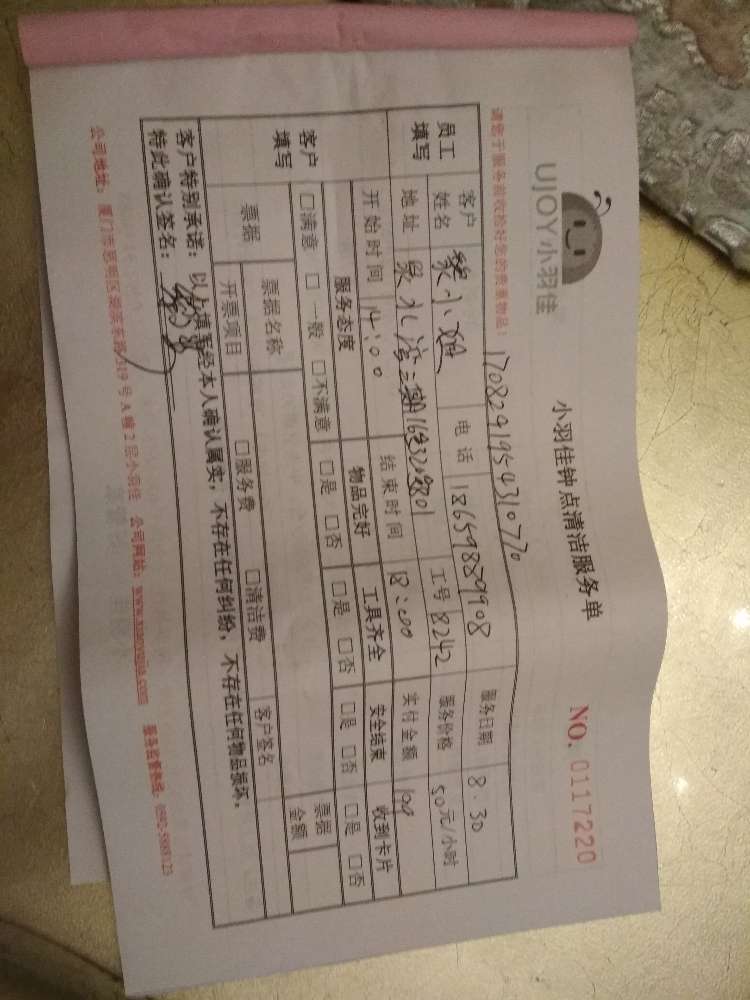 UJOY小羽佳
小羽佳钟点清洁服务单
NO. 0117220
请您于服务前收检好您的贵重物品!
1708291954310770
服务日期 8.30
员工填写
客户姓名 黎小姐 电话 18659889908 工号 8242 服务价格 50元/小时
地址
开始时间 14:00 结束时间 18:00 实付金额
客户填写
服务态度 物品完好 工具齐全 安全结束 收到卡片
□满意 □一般 □不满意 □是 □否 □是 □否 □是 □否 □是 □否
票据 票据名称 □服务费 □清洁费 客户签名 票据金额
开票项目
客户特别承诺:以上填写经本人确认属实,不存在任何纠纷,不存在任何物品损坏。
特此确认签名:
公司地址:厦门市思明区湖滨东路319号A幢2层小羽佳 公司网站:www.xiaoyujia.com 服务监督热线:0592-5888123